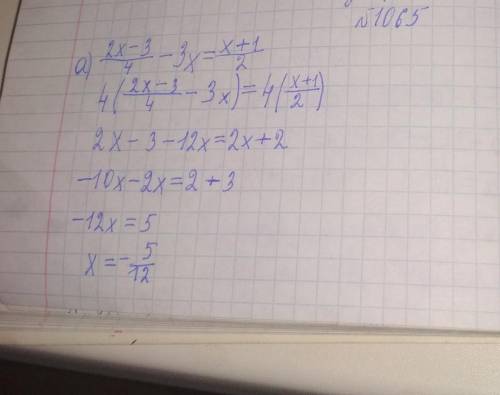 №1065
а) (2x-3)/4 - 3x = (x+1)/2
4((2x-3)/4 - 3x) = 4((x+1)/2)
2x - 3 - 12x = 2x + 2
-10x - 2x = 2 + 3
-12x = 5
x = -5/12